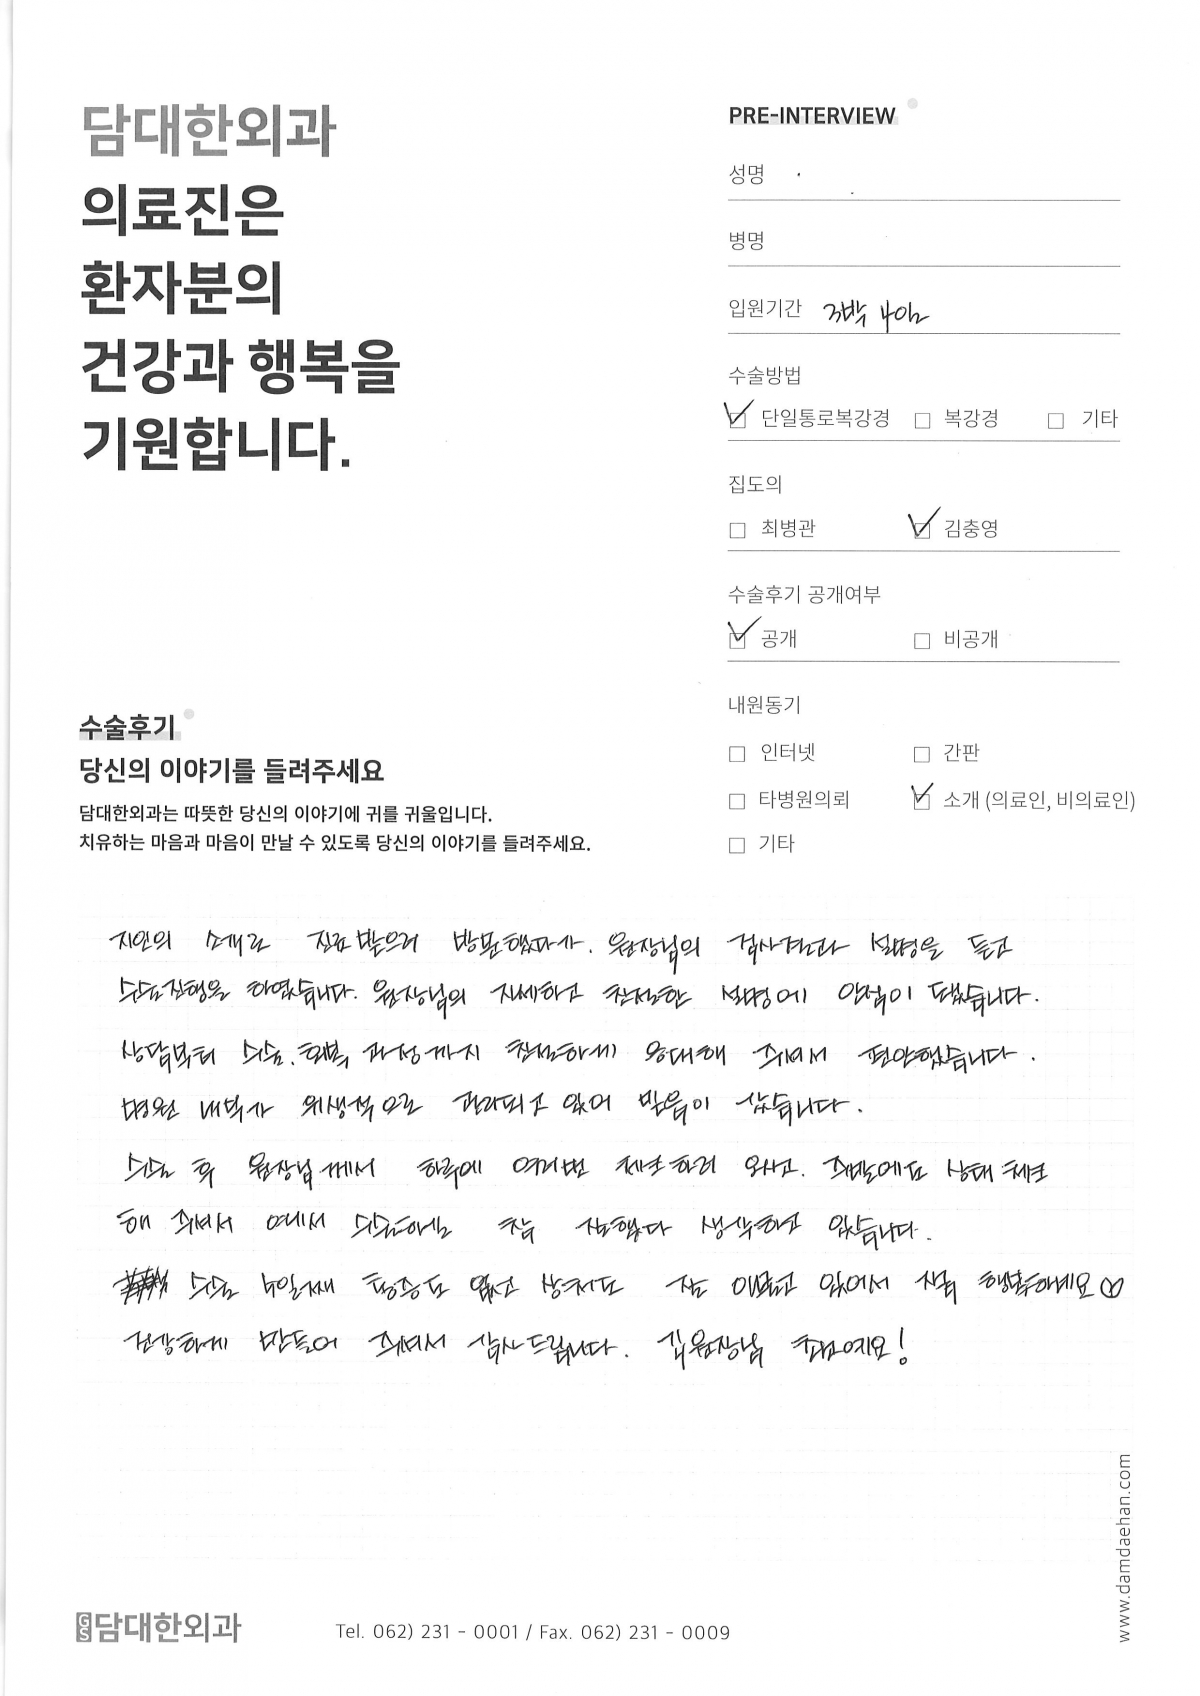 담대한외과
의료진은
환자분의
건강과 행복을
기원합니다.
PRE-INTERVIEW
성명
병명
입원기간 3박 4일
수술방법
☑ 단일통로복강경 ☐ 복강경 ☐ 기타
집도의
☐ 최병관 ☑ 김충영
수술후기 공개여부
☑ 공개 ☐ 비공개
내원동기
☐ 인터넷 ☐ 간판
☐ 타병원의뢰 ☑ 소개 (의료인, 비의료인)
☐ 기타
수술후기
당신의 이야기를 들려주세요
담대한외과는 따뜻한 당신의 이야기에 귀를 귀울입니다.
치유하는 마음과 마음이 만날 수 있도록 당신의 이야기를 들려주세요.
지인의 소개로 진료 받으러 방문했다가. 원장님의 검사결과 설명을 듣고
수술진행을 하였습니다. 원장님의 자세하고 친절한 설명에 안정이 됐습니다.
상담부터 수술.회복 과정까지 친절하게 응대해 주셔서 편안했습니다.
병원 내부가 위생적으로 관리되고 있어 믿음이 갔습니다.
수술 후 원장님께서 하루에 여러번 체크하러 오시고. 주말에도 상태 체크
해 주셔서 여기서 수술하길 참 잘했다 생각하고 있습니다.
수술 4일째 통증도 없고 상처도 잘 아물고 있어서 진짜 행복하네요♡
건강하게 만들어 주셔서 감사드립니다. 김원장님 최고예요!
www.damdaehan.com
GS 담대한외과
Tel. 062) 231 - 0001 / Fax. 062) 231 - 0009